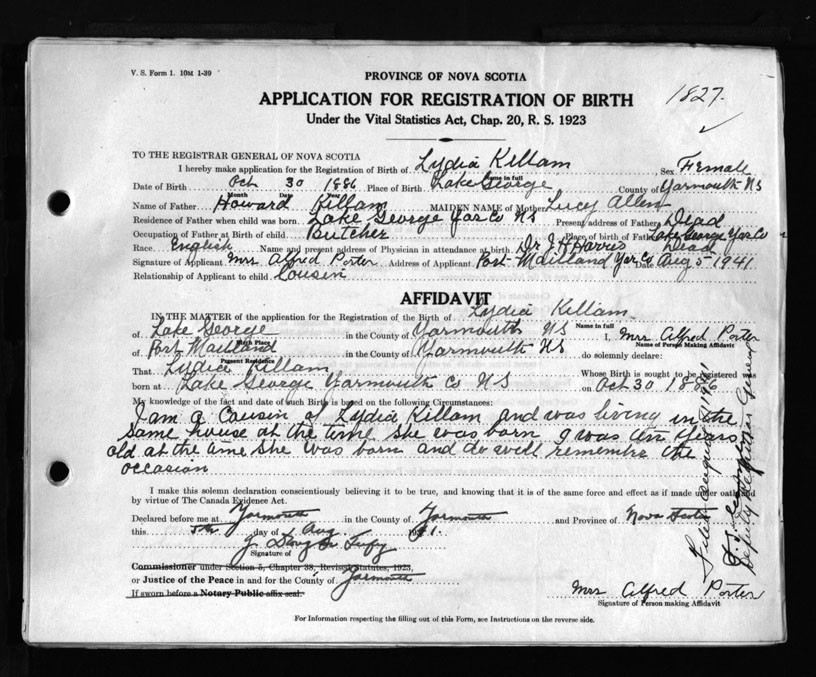 V. S. Form 1. 10M 1-39
PROVINCE OF NOVA SCOTIA
1827.
APPLICATION FOR REGISTRATION OF BIRTH
Under the Vital Statistics Act, Chap. 20, R. S. 1923
TO THE REGISTRAR GENERAL OF NOVA SCOTIA
I hereby make application for the Registration of Birth of Lydia Killam Sex Female
Name in full
Date of Birth Oct 30 1886 Place of Birth Lake George County of Yarmouth NS
Month Date
Name of Father Howard Killam MAIDEN NAME of Mother Lucy Allen
Residence of Father when child was born Lake George Yar Co NS Present address of Father Dead
Occupation of Father at Birth of child Butcher Place of birth of Father Lake George Yar Co
Race English Name and present address of Physician in attendance at Birth Dr J H Harris Dead
Signature of Applicant Mrs Alfred Porter Address of Applicant Port Maitland Yar Co Date Aug 5 1941
Relationship of Applicant to child Cousin
AFFIDAVIT
IN THE MATTER of the application for the Registration of the Birth of Lydia Killam
Name in full
of Lake George in the County of Yarmouth NS I, Mrs Alfred Porter
Birth Place Name of Person Making Affidavit
of Port Maitland in the County of Yarmouth NS do solemnly declare:
Present Residence
That Lydia Killam Whose Birth is sought to be registered was
born at Lake George Yarmouth Co NS on Oct 30 1886
My knowledge of the fact and date of such Birth is based on the following Circumstances:
I am a Cousin of Lydia Killam and was living in the
same house at the time she was born I was ten years
old at the time she was born and do well remember the
occasion
I make this solemn declaration conscientiously believing it to be true, and knowing that it is of the same force and effect as if made under oath and
by virtue of The Canada Evidence Act.
Declared before me at Yarmouth in the County of Yarmouth and Province of Nova Scotia
this 5th day of Aug 1941.
Signature of
Commissioner under Section 5, Chapter 38, Revised Statutes, 1923,
or Justice of the Peace in and for the County of Yarmouth
If sworn before a Notary Public affix seal.
Mrs Alfred Porter
Signature of Person making Affidavit
For Information respecting the filling out of this Form, see Instructions on the reverse side.
Deputy Registrar General